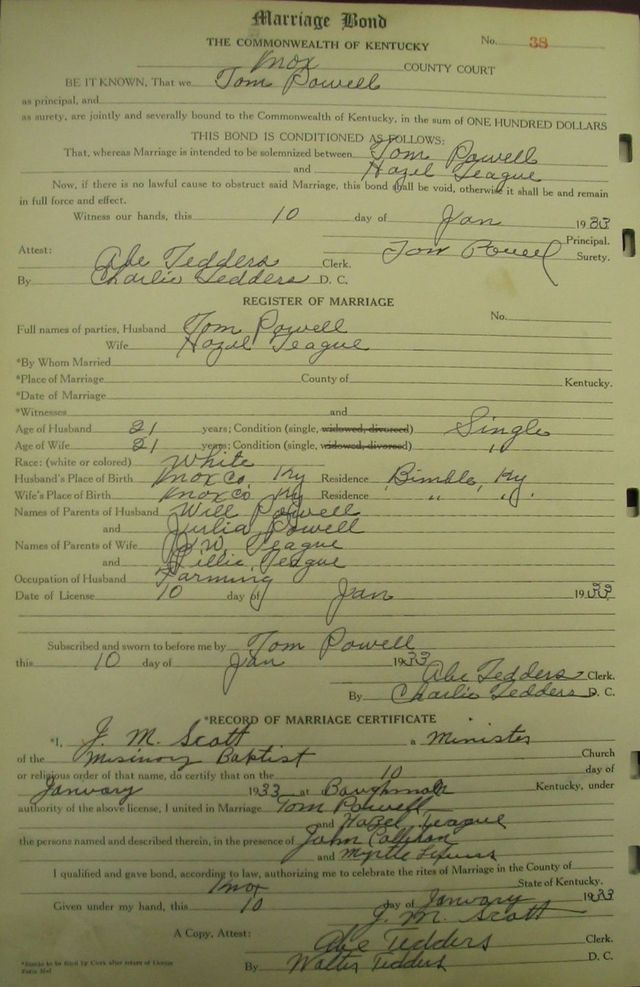 Marriage Bond
THE COMMONWEALTH OF KENTUCKY No. 38
Knox COUNTY COURT
BE IT KNOWN, That we Tom Powell
as principal, and
as surety, are jointly and severally bound to the Commonwealth of Kentucky, in the sum of ONE HUNDRED DOLLARS
THIS BOND IS CONDITIONED AS FOLLOWS:
That, whereas Marriage is intended to be solemnized between Tom Powell
and Hazel League
Now, if there is no lawful cause to obstruct said Marriage, this bond shall be void, otherwise it shall be and remain
in full force and effect.
Witness our hands, this 10 day of Jan 1933
Principal.
Attest: Tom Powell Surety.
Abe Tedders Clerk.
By Charlie Tedders D. C.
REGISTER OF MARRIAGE
No.
Full names of parties, Husband Tom Powell
Wife Hazel League
*By Whom Married
*Place of Marriage County of Kentucky.
*Date of Marriage
*Witnesses and
Age of Husband 21 years; Condition (single, widowed, divorced) Single
Age of Wife 21 years; Condition (single, widowed, divorced) "
Race: (white or colored) White
Husband's Place of Birth Knox Co, Ky Residence Bimble, Ky.
Wife's Place of Birth Knox Co Ky Residence " " ".
Names of Parents of Husband Will Powell
and Julia Powell
Names of Parents of Wife W. League
and League
Occupation of Husband Farming
Date of License 10 day of Jan 1933
Subscribed and sworn to before me by Tom Powell
this 10 day of Jan 1933
Abe Tedders Clerk.
By Charlie Tedders D. C.
*RECORD OF MARRIAGE CERTIFICATE
*I, J. M. Scott a Minister
of the Misinory Baptist Church
or religious order of that name, do certify that on the 10 day of
January 1933 at Baughman Kentucky, under
authority of the above license, I united in Marriage Tom Powell
and Hazel League
the persons named and described therein, in the presence of John
and Myrtle
I qualified and gave bond, according to law, authorizing me to celebrate the rites of Marriage in the County of
Knox State of Kentucky.
Given under my hand, this 10 day of January 1933
J. M. Scott
A Copy, Attest: Abe Tedders Clerk.
By Walter Tedders